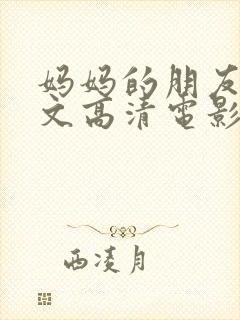 妈妈的朋友
文高清电影
西凌月